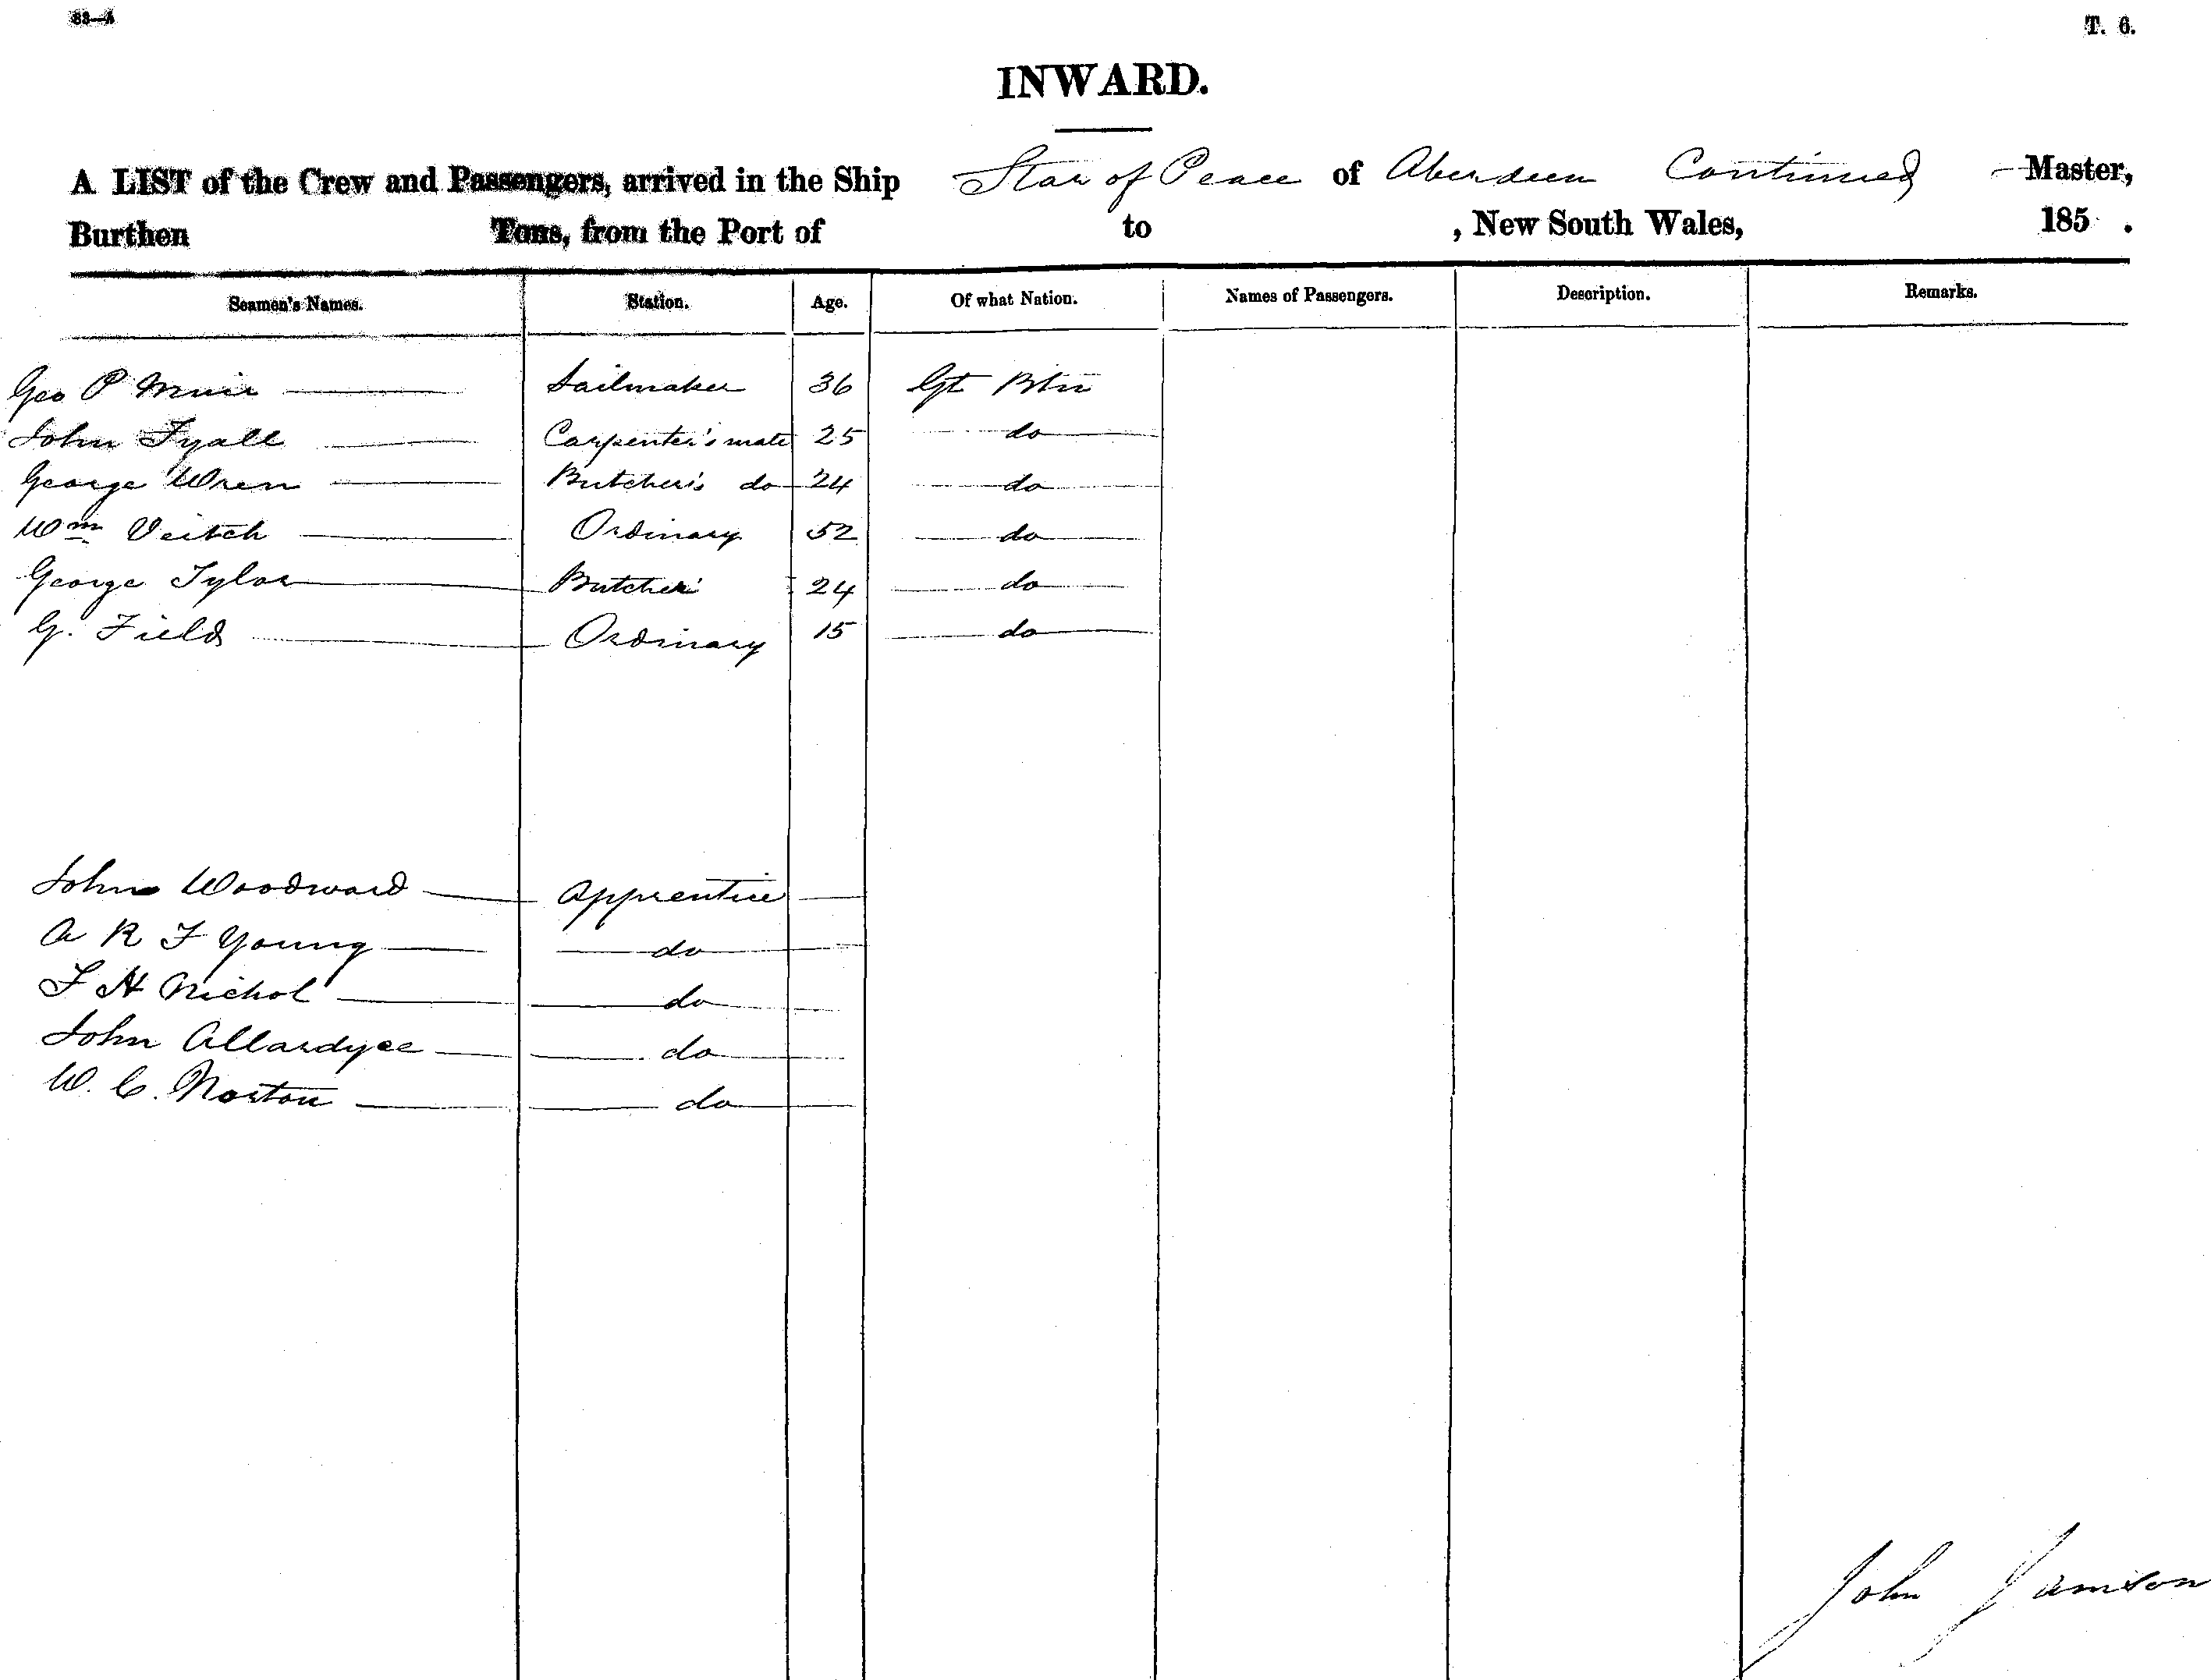 63—A
T. 6.
INWARD.
A LIST of the Crew and Passengers, arrived in the Ship Star of Peace of Aberdeen Continued Master,
Burthen Tons, from the Port of to , New South Wales, 185 .
Seamen's Names. Station. Age. Of what Nation. Names of Passengers. Description. Remarks.
Geo P Muir Sailmaker 36 Gt Btn
John Fyall Carpenter's mate 25 do
George Wren Butcher's do 24 do
Wm Veitch Ordinary 52 do
George Tylor Butcher 24 do
G. Field Ordinary 15 do
John Woodward Apprentice
A R F Young do
F H Nichol do
John Allardyce do
W. C. Norton do
John Jamson